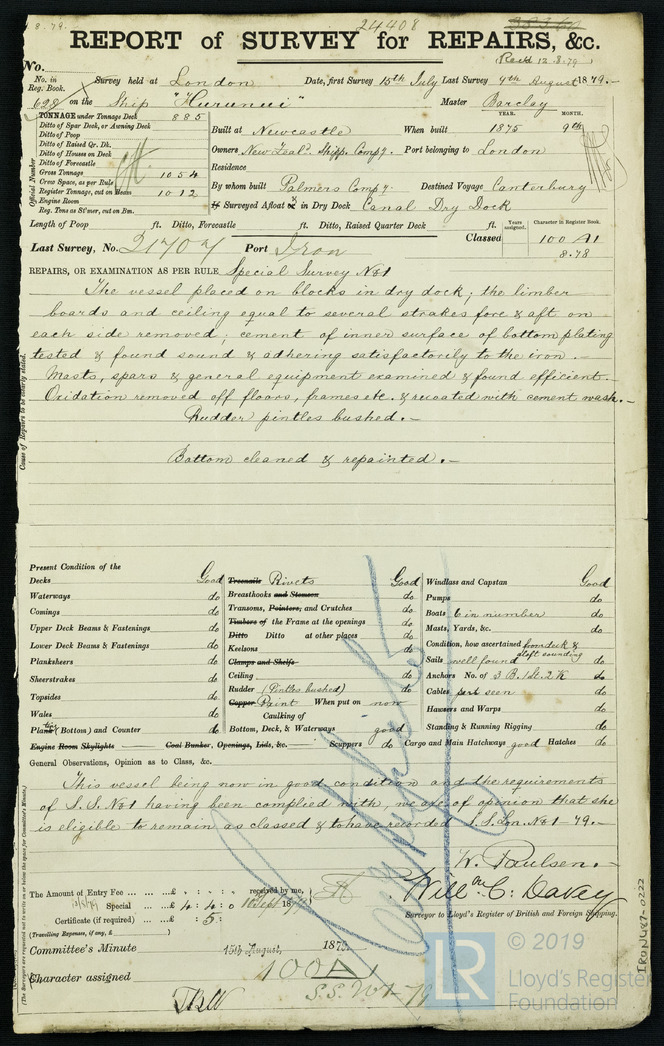 8.79. 24408
REPORT of SURVEY for REPAIRS, &c.
Recd 12.8.79
No.
No. in Reg. Book. Survey held at London Date, first Survey 15th July Last Survey 9th August 1879.-
628 on the Ship "Hurunui" Master Barclay
TONNAGE under Tonnage Deck 885
Ditto of Spar Deck, or Awning Deck
Ditto of Poop
Ditto of Raised Qr. Dk.
Ditto of Houses on Deck
Ditto of Forecastle
Gross Tonnage 1054
Crew Space, as per Rule
Register Tonnage, cut on Beam 1012
Engine Room
Reg. Tons as St'mer, cut on Bm.
Official Number
YEAR. MONTH.
Built at Newcastle When built 1875 9th
Owners New Zeal. Shipp. Compy. Port belonging to London
Residence
By whom built Palmers Compy Destined Voyage Canterbury
If Surveyed Afloat or in Dry Dock Canal Dry Dock
Length of Poop ft. Ditto, Forecastle ft. Ditto, Raised Quarter Deck ft.
Years assigned. Character in Register Book.
Last Survey, No. 21707 Port Iron Classed 100 A1
8.78
REPAIRS, OR EXAMINATION AS PER RULE Special Survey No1
The vessel placed on blocks in dry dock; the limber
boards and ceiling equal to several strakes fore & aft on
each side removed; cement of inner surface of bottom plating
tested & found sound & adhering satisfactorily to the iron.-
Masts, spars & general equipment examined & found efficient.-
Oxidation removed off floors, frames etc. & recoated with cement wash.-
Rudder pintles bushed.-
Bottom cleaned & repainted.-
Cause of Repairs to be clearly stated.
Present Condition of the
Decks Good
Waterways do
Comings do
Upper Deck Beams & Fastenings do
Lower Deck Beams & Fastenings do
Planksheers do
Sheerstrakes do
Topsides do
Wales do
Plating (Bottom) and Counter do
Engine Room Skylights Coal Bunker, Openings, Lids, &c. Scuppers do
Treenails Rivets Good
Breasthooks and Stemson do
Transoms, Pointers, and Crutches do
Timbers of the Frame at the openings do
Ditto Ditto at other places do
Keelsons do
Clamps and Shelfs
Ceiling do
Rudder (Pintles bushed) do
Copper Paint When put on now
Caulking of
Bottom, Deck, & Waterways good
Windlass and Capstan Good
Pumps do
Boats 6 in number do
Masts, Yards, &c. do
Condition, how ascertained from deck & aloft sounding
Sails well found do
Anchors No. of 3 B. 1 St. 2 K do
Cables part seen do
Hawsers and Warps do
Standing & Running Rigging do
Cargo and Main Hatchways good Hatches do
General Observations, Opinion as to Class, &c.
This vessel being now in good condition and the requirements
of S.S. No1 having been complied with, we are of opinion that she
is eligible to remain as classed & to have recorded S.S. Lon. No1-79.-
W. Paulsen.-
Will m C. Davey
Surveyor to Lloyd's Register of British and Foreign Shipping.
The Amount of Entry Fee ... £ : : received by me,
Special ... £ 4 : 4 : 0
Certificate (if required) ... : 5 :
(Travelling Expenses, if any, £ )
Committee's Minute 15th August, 1879.
Character assigned 100A1
S.S. No1-79
(The Surveyors are requested not to write on or below the space for Committee's Minute.)
IRON487-0222
LR © 2019
Lloyd's Register
Foundation